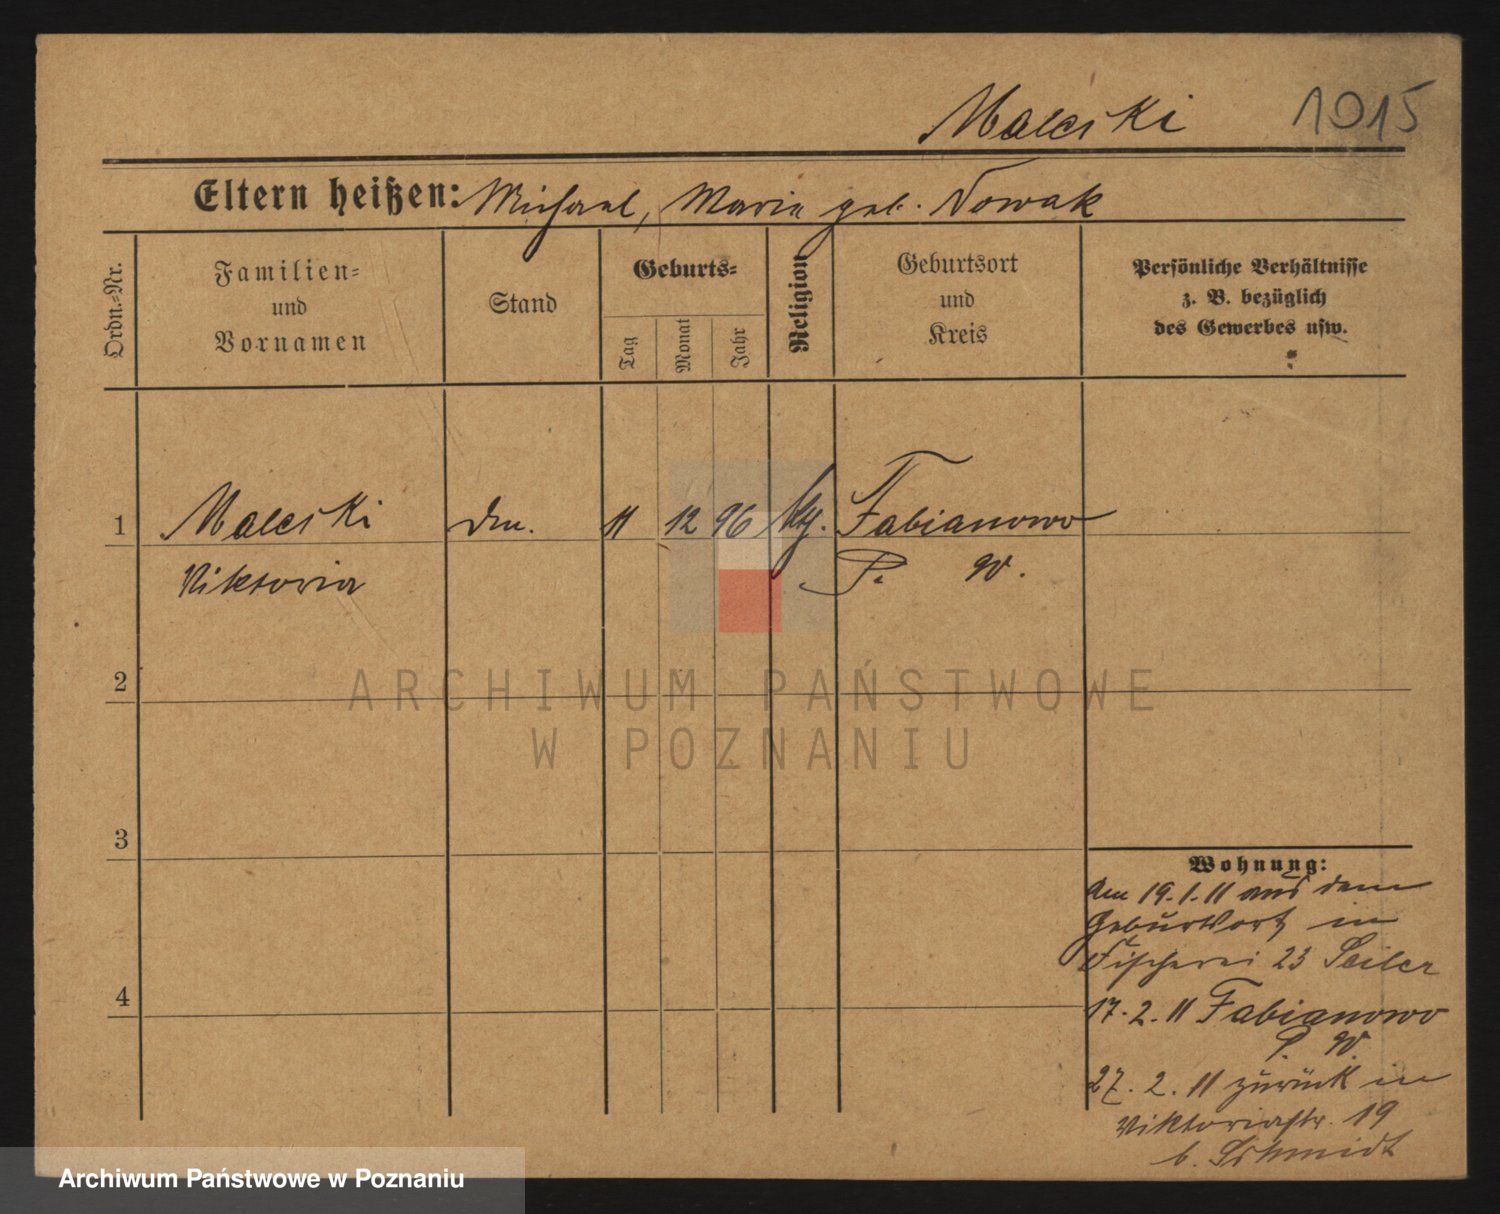 Maleski 1915
Eltern heißen: Michael, Maria geb. Nowak
Ordn.-Nr.
Familien-
und
Vornamen
Stand
Geburts-
Tag
Monat
Jahr
Religion
Geburtsort
und
Kreis
Persönliche Verhältnisse
z. B. bezüglich
des Gewerbes usw.
1 Maleski 11 12 96 Fabianowo
Viktoria P. W.
2
3
4
Wohnung:
Am 19.1.11 aus dem
Geburtsort in
Fischerei 23 Seiler
17.2.11 Fabianowo
P. W.
27.2.11 zurück in
Viktoriastr. 19
b. Schmidt
ARCHIWUM PAŃSTWOWE
W POZNANIU
Archiwum Państwowe w Poznaniu